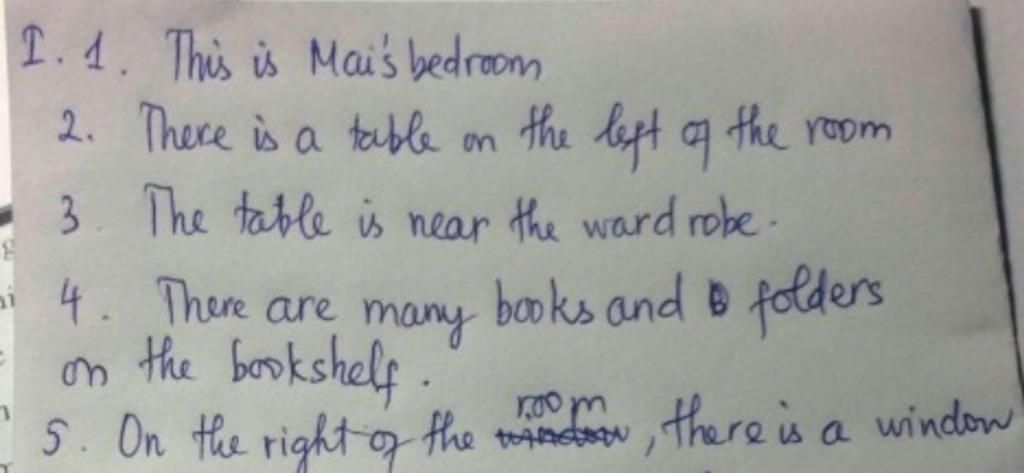 I. 1. This is Mai's bedroom
2. There is a table on the left of the room
3. The table is near the wardrobe.
4. There are many books and folders
on the bookshelf.
5. On the right of the room, there is a window